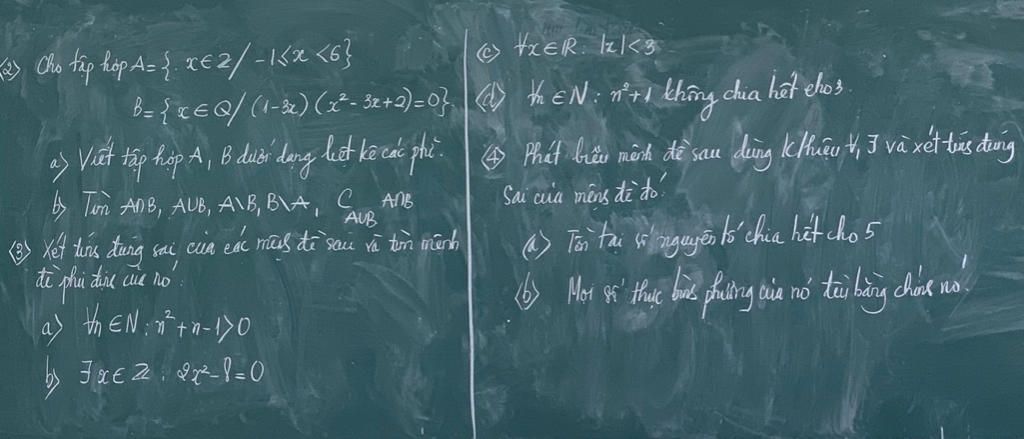 ② Cho tập hợp A = { x ∈ Z / -1 ≤ x < 6}
B = { x ∈ Q / (1-3x) (x² - 3x + 2) = 0}
a) Viết tập hợp A, B dưới dạng liệt kê các ptử.
b) Tìm A∩B, A∪B, A\B, B\A, C_{A∪B} A∩B
③ Xét tính đúng sai của các mệnh đề sau và tìm mệnh
đề phủ định của nó:
a) ∀n ∈ N : n² + n - 1 > 0
b) ∃x ∈ Z : 2x² - 8 = 0
c) ∀x ∈ R : |x| < 3
d) ∀n ∈ N : n² + 1 không chia hết cho 3.
④ Phát biểu mệnh đề sau dùng k/hiệu ∀, ∃ và xét tính đúng
sai của mệnh đề đó.
a) Tồn tại số nguyên tố chia hết cho 5
b) Mọi số thực bình phương của nó đều bằng chính nó.